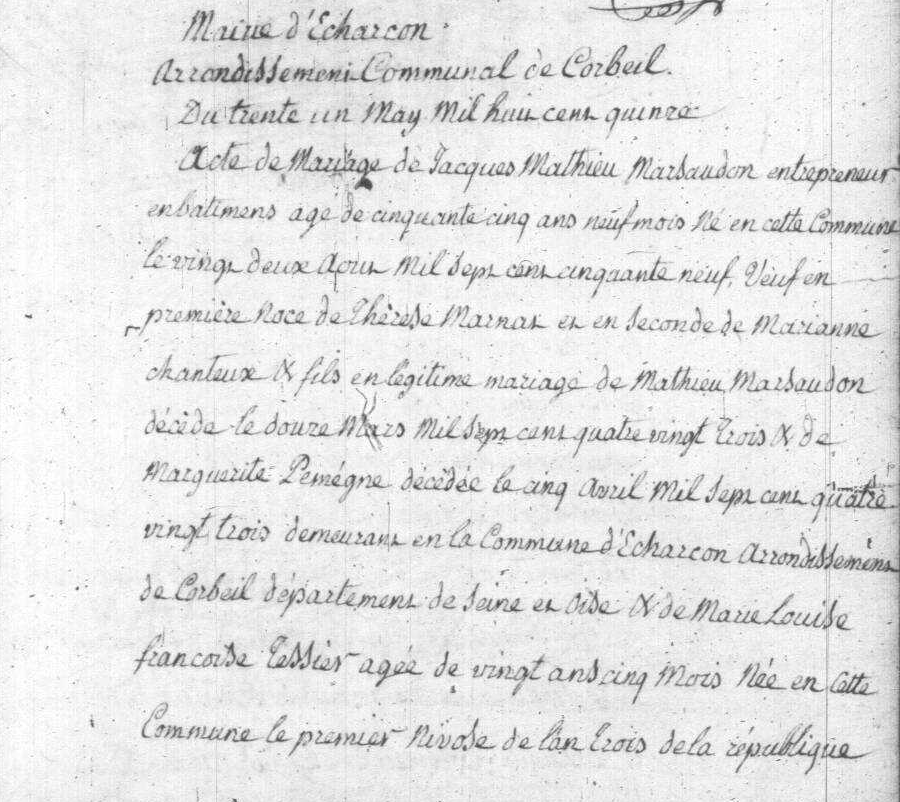 Mairie d'Echarcon
Arrondissement Communal de Corbeil.
Du trente un May Mil huit cent quinze
Acte de Mariage de Jacques Mathieu Marsaudon entrepreneur
en batimens agé de cinquante cinq ans neuf mois Né en cette Commune
le vingt deux Aout Mil Sept cent cinquante neuf, Veuf en
première Noce de Thérèse Marnat et en Seconde de Marianne
chanteux & fils en légitime mariage de Mathieu Marsaudon
décédé le douze Mars Mil Sept cent quatre vingt trois & de
Marguerite Pemégne décédée le cinq Avril Mil Sept cent quatre
vingt trois demeurant en la Commune d'Echarcon Arrondissement
de Corbeil département de Seine et Oise & de Marie Louise
francoise Tessier agée de vingt ans cinq Mois Née en Cette
Commune le premier Nivose de l'an trois de la république